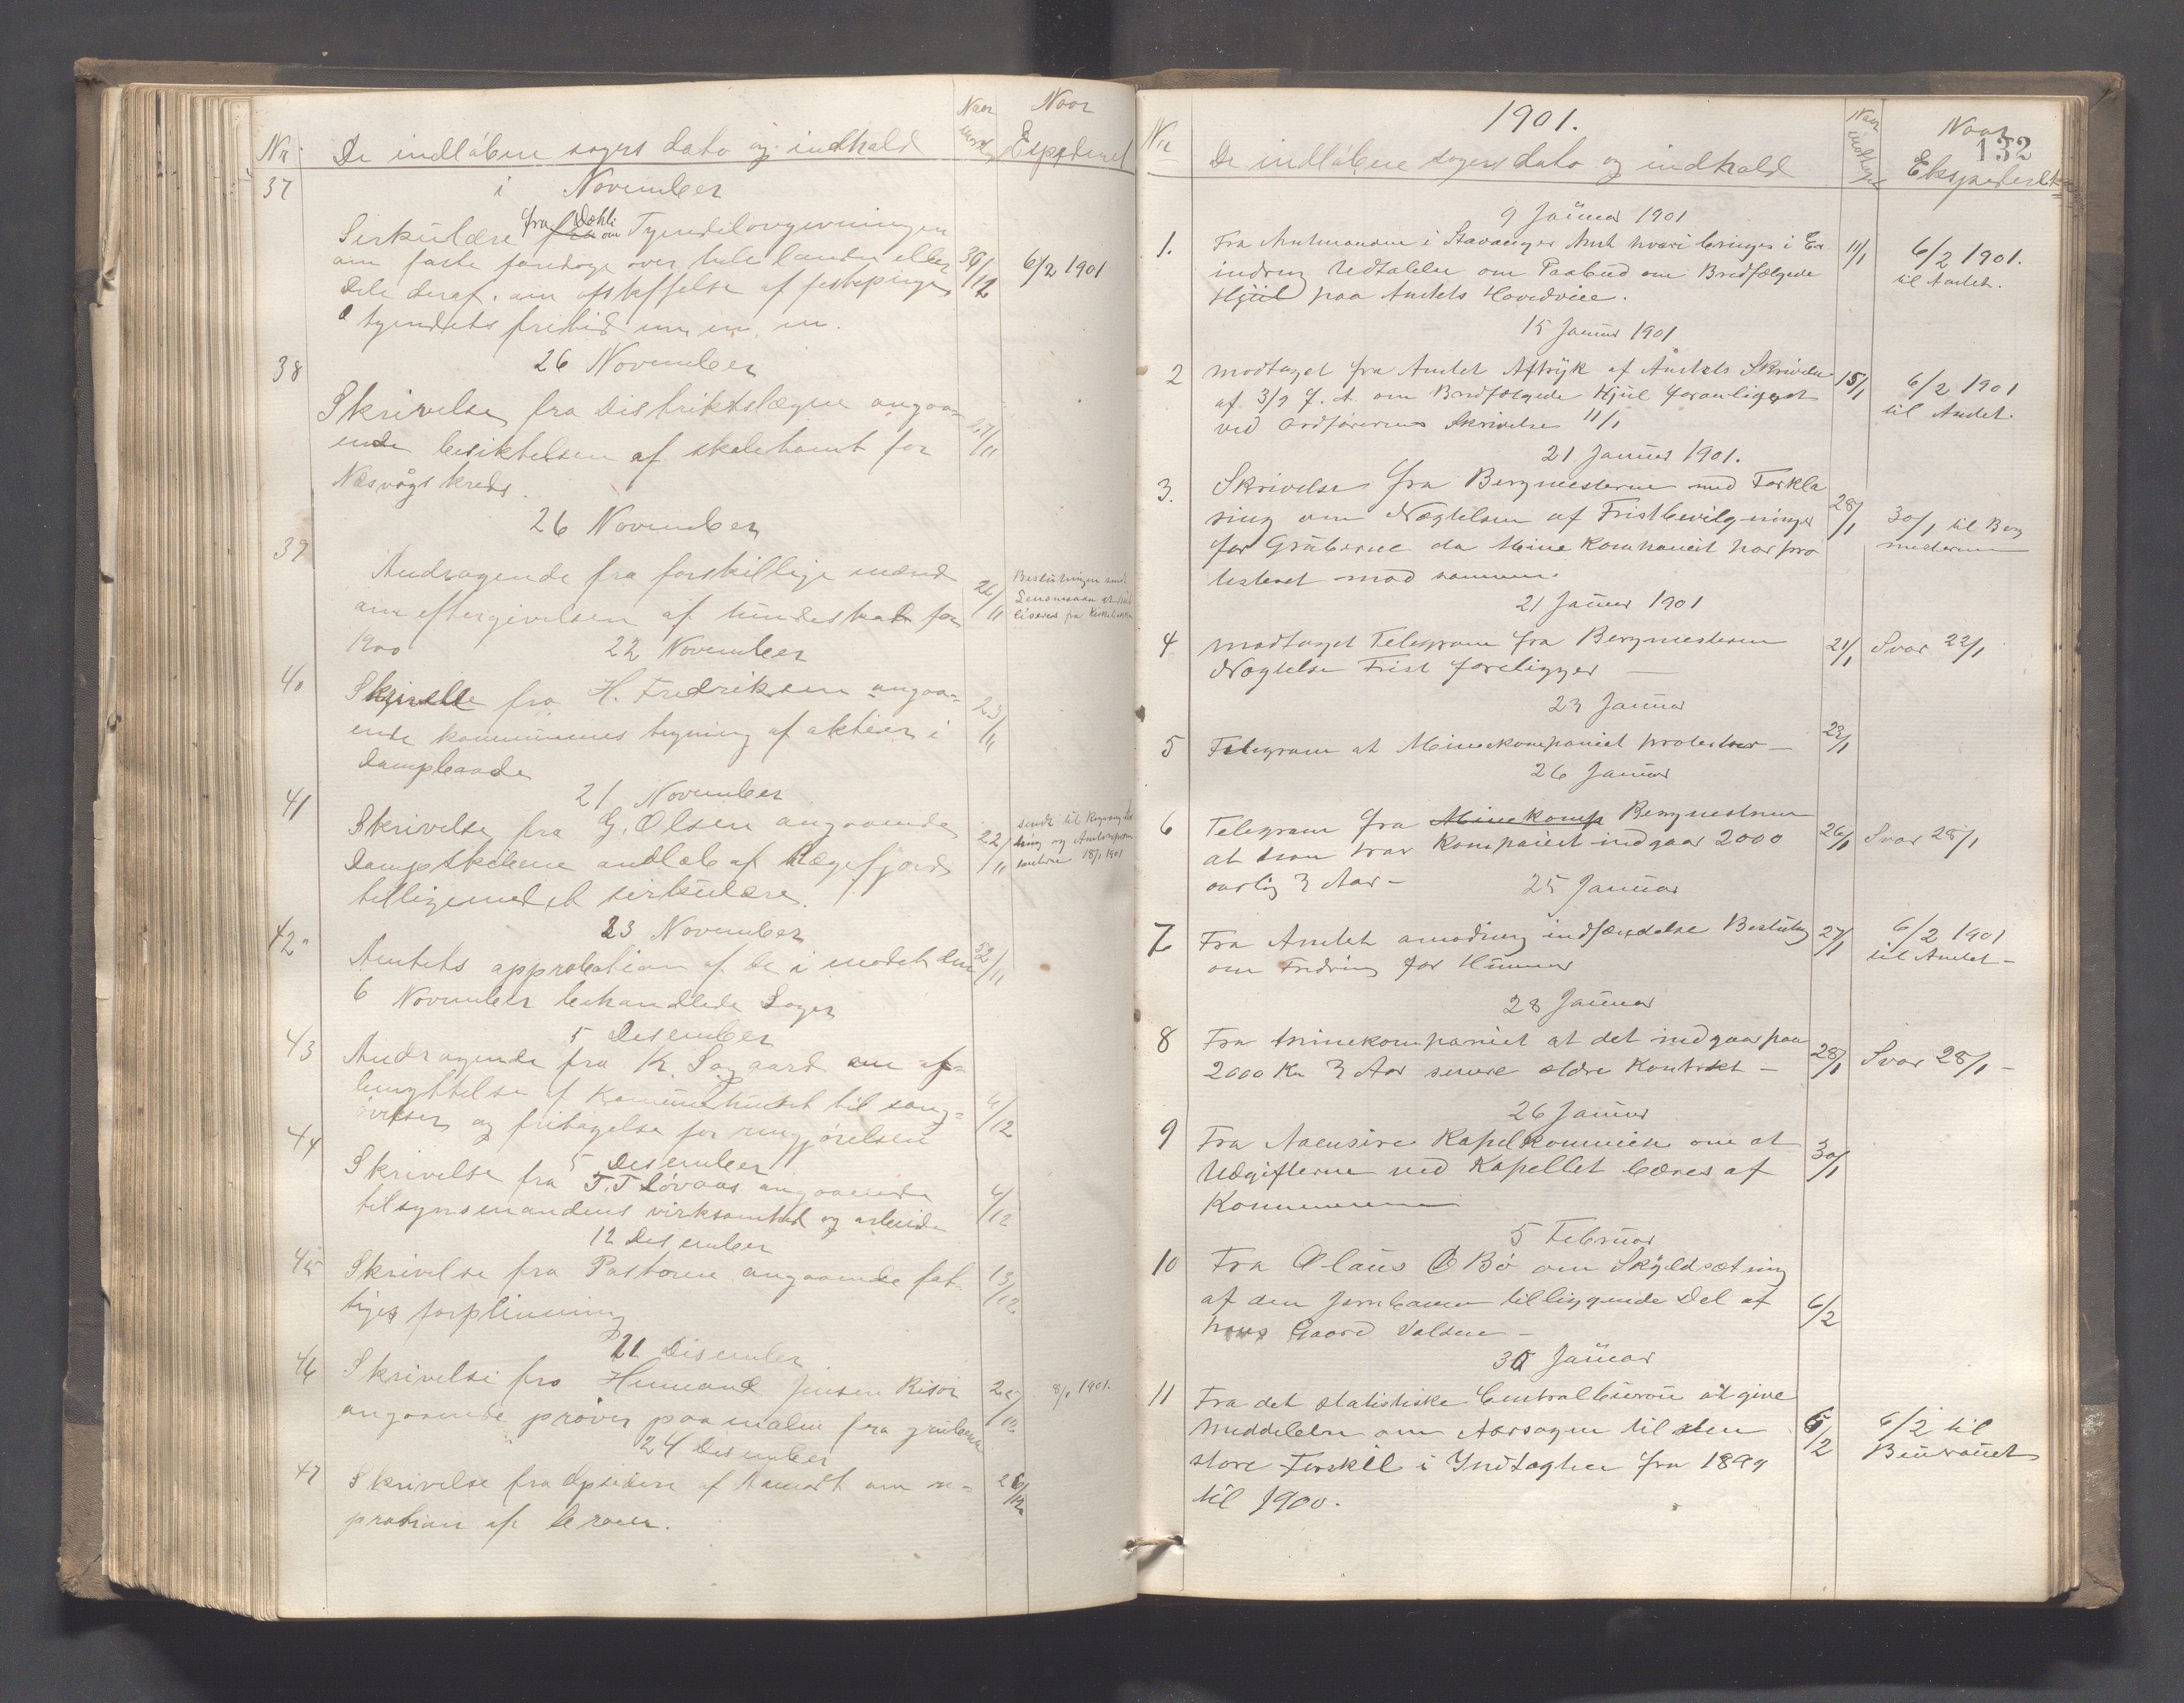 Nr
De indløbne sagers dato og indhold
Naar
modtaget
Naar
Expederet
37
i November
Sirkulære fra Dehli om Tyendelovgivningen
om faste faredage over hele landet eller
Dele deraf. om afskaffelse af festepenge,
tyendets fritid m. m. m.
30/12
6/2 1901
38
26 November
Skrivelse fra Distriktslægen angaa-
ende besiktelsen af skoletomt for
Næsvågs kreds.
27/11
26 November
39
Andragende fra forskillige mænd
om eftergivelsen af hundeskat for
1900
26/11
Beslutningen sendt
Lensmanden
22 November
40
Skrivelse fra H. Fredriksen angaa-
ende kommunens tegning af aktier i
Dampbaade
23/11
21 November
41
Skrivelse fra G. Olsen angaaende
Dampskibene anløb af Rægefjord
tilligemed et sirkulære.
22/11
sendt til
og
18/1 1901
23 November
42
Amtets approbation af de i mødet den
6 November behandlede Sager
5 Desember
43
Andragende fra K. Sogaard om af-
benyttelse af Kommunehuset til sang-
øvelser og fritagelse for rengjørelsen
6/12
5 Desember
44
Skrivelse fra T. T Løvaas angaaende
tilsynsmandens virksomhed og arbeide
6/12
12 Desember
45
Skrivelse fra Pastoren angaaende fat-
tiges forpleining
13/12
21 Desember
46
Skrivelse fra Humand Jensen Risør
angaaende prøver paa malm fra gruberne
8/1 1901.
24 Desember
47
Skrivelse fra Opsideren af Aamodt om re-
pration af broen.
26/12
1901.
132
Nr
De indløbne sagers dato og indhold
Naar
modtaget
Naar
Ekspederet
9 Januar 1901
1.
Fra Amtmanden i Stavanger Amt hvori bringes i Er
indring Udtalelse om Paabud om Bredfælgede
Hjul paa Amtets Hovedveie.
11/1
6/2 1901.
til Amtet.
15 Januar 1901
2
modtaget fra Amtet Aftryk af Amtets Skrivelse
af 3/9 f. A. om Bredfælgede Hjul foranlediget
ved Ordførerens Skrivelse 11/1
15/1
6/2 1901
til Amtet.
21 Januar 1901.
3.
Skrivelse fra Bergmesteren med Forkla
ring om Nægtelsen af Fristbevilgninger
for Gruberne da Mine Kompaniet har pro
testeret mod samme.
28/1
30/1 til Berg
mesteren
21 Januar 1901
4
modtaget Telegram fra Bergmesteren
Nægtelse Frist foreligger —
21/1
Svar 22/1
23 Januar
5
Telegram at Minekompaniet protesterer —
23/1
26 Januar
6
Telegram fra Minekomp Bergmesteren
at han tror Kompaniet indgaar 2000
aarlig 3 Aar —
26/1
Svar 28/1
25 Januar
7
Fra Amtet anmodning indsændelse Beslutning
om Fredning for Hummer
27/1
6/2 1901
til Amtet —
28 Januar
8
Fra Minekompaniet at det indgaar paa
2000 Kr 3 Aar senere ældre Kontrakt —
28/1
Svar 28/1 —
26 Januar
9
Fra Aaensire Kapelkommision om at
Udgifterne ved Kapellet bæres af
Kommunen
30/1
5 Februar
10
Fra Olaus O Bø om Skyldsætning
af den Jernbanen tilliggende Del af
hans Gaard Valden —
6/2
30 Januar
11
Fra det statistiske Centralbureau at give
Meddelelse om Aarsagen til den
store Forskil i Indtagten fra 1899
til 1900.
6/2
6/2 til
Bureauet